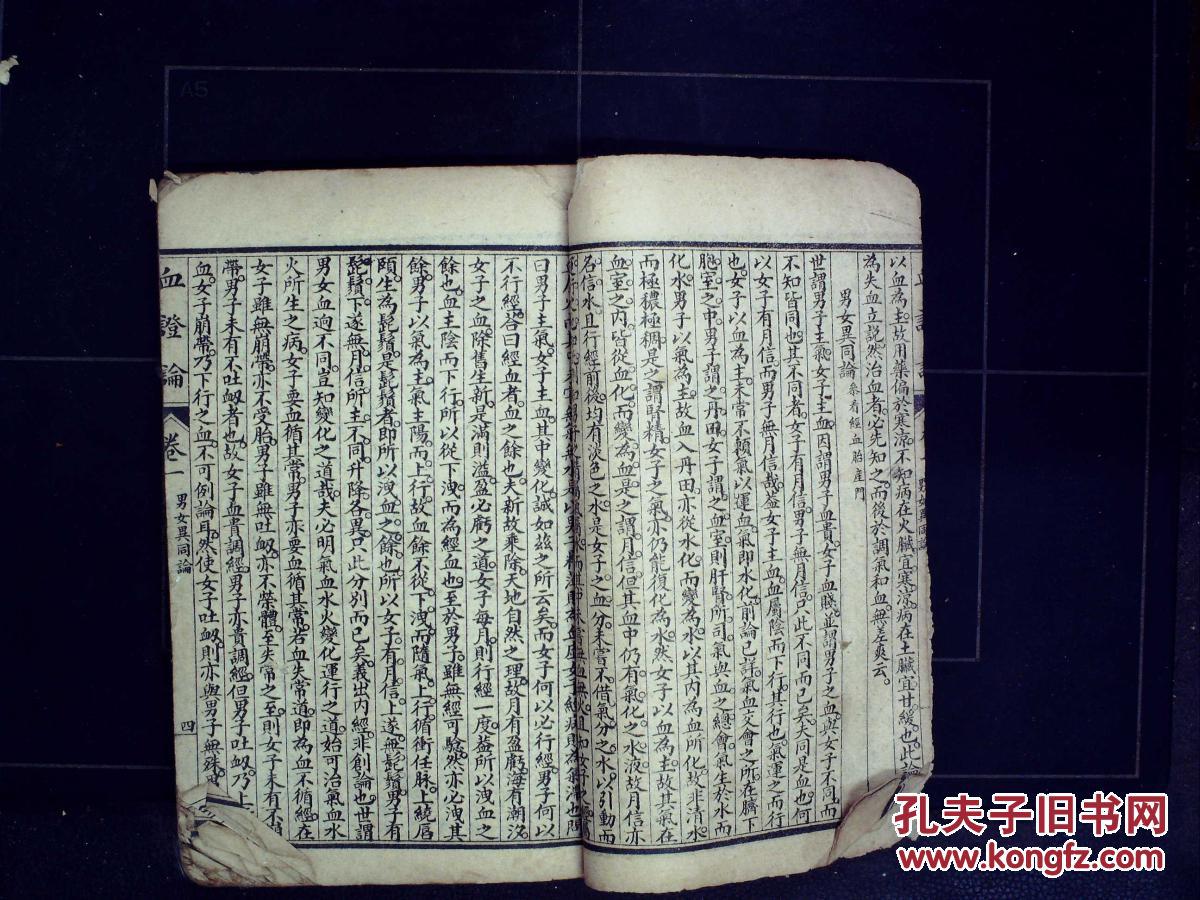 以血為主故用藥偏於寒涼不知病在火臟宜寒涼病在土臟宜甘緩也此論
為失血立說然治血者必先知之而後於調氣和血無差爽云
男女異同論 參看經血胎產門
世謂男子主氣女子主血因謂男子血貴女子血賤並謂男子之血與女子不同而
不知皆同也其不同者女子有月信男子無月信只此不同而已矣夫同是血也何
以女子有月信而男子無月信哉蓋女子主血血屬陰而下行其行也氣運之而行
也女子以血為主未常不賴氣以運血氣即水化前論已詳氣血交會之所在臍下
胞室之中男子謂之丹田女子謂之血室則肝腎所司氣與血之總會氣生於水而
化水男子以氣為主故血入丹田亦從水化而變為水以其內為血所化故非清水
而極濃極稠是之謂腎精女子之氣亦仍能復化為水然女子以血為主故其氣在
血室之內皆從血化而變為血是之謂月信但其血中仍有氣化之水液故月信亦
名信水且行經前後均有淡色之水是女子之血分未嘗不借氣分之水以引動而
曰男子主氣女子主血其中變化誠如茲之所云矣而女子何以必行經男子何以
不行經答曰經血者血之餘也夫新故乘除天地自然之理故月有盈虧海有潮汐
女子之血除舊生新是滿則溢盈必虧之道女子每月則行經一度蓋所以洩血之
餘也血主陰而下行所以從下洩而為經血也至於男子雖無經可驗然亦必洩其
餘男子以氣為主氣主陽而上行故血餘不從下洩而隨氣上行循衝任脈上繞唇
頤生為髭鬚是髭鬚者即所以洩血之餘也所以女子有月信上遂無髭鬚男子有
髭鬚下遂無月信所主不同升降各異只此分別而已矣義出內經非創論也世謂
男女血迥不同豈知變化之道哉夫必明氣血水火變化運行之道始可治氣血水
火所生之病女子要血循其常男子亦要血循其常若血失常道即為血不循經在
女子雖無崩帶亦不受胎男子雖無吐衄亦不榮體至失常之至則女子未有不崩
帶男子未有不吐衄者也故女子血貴調經男子亦貴調經但男子吐衄乃上
血女子崩帶乃下行之血不可例論耳然使女子吐衄則亦與男子無殊
血證論 卷一 男女異同論 四
A5
孔夫子旧书网
www.kongfz.com